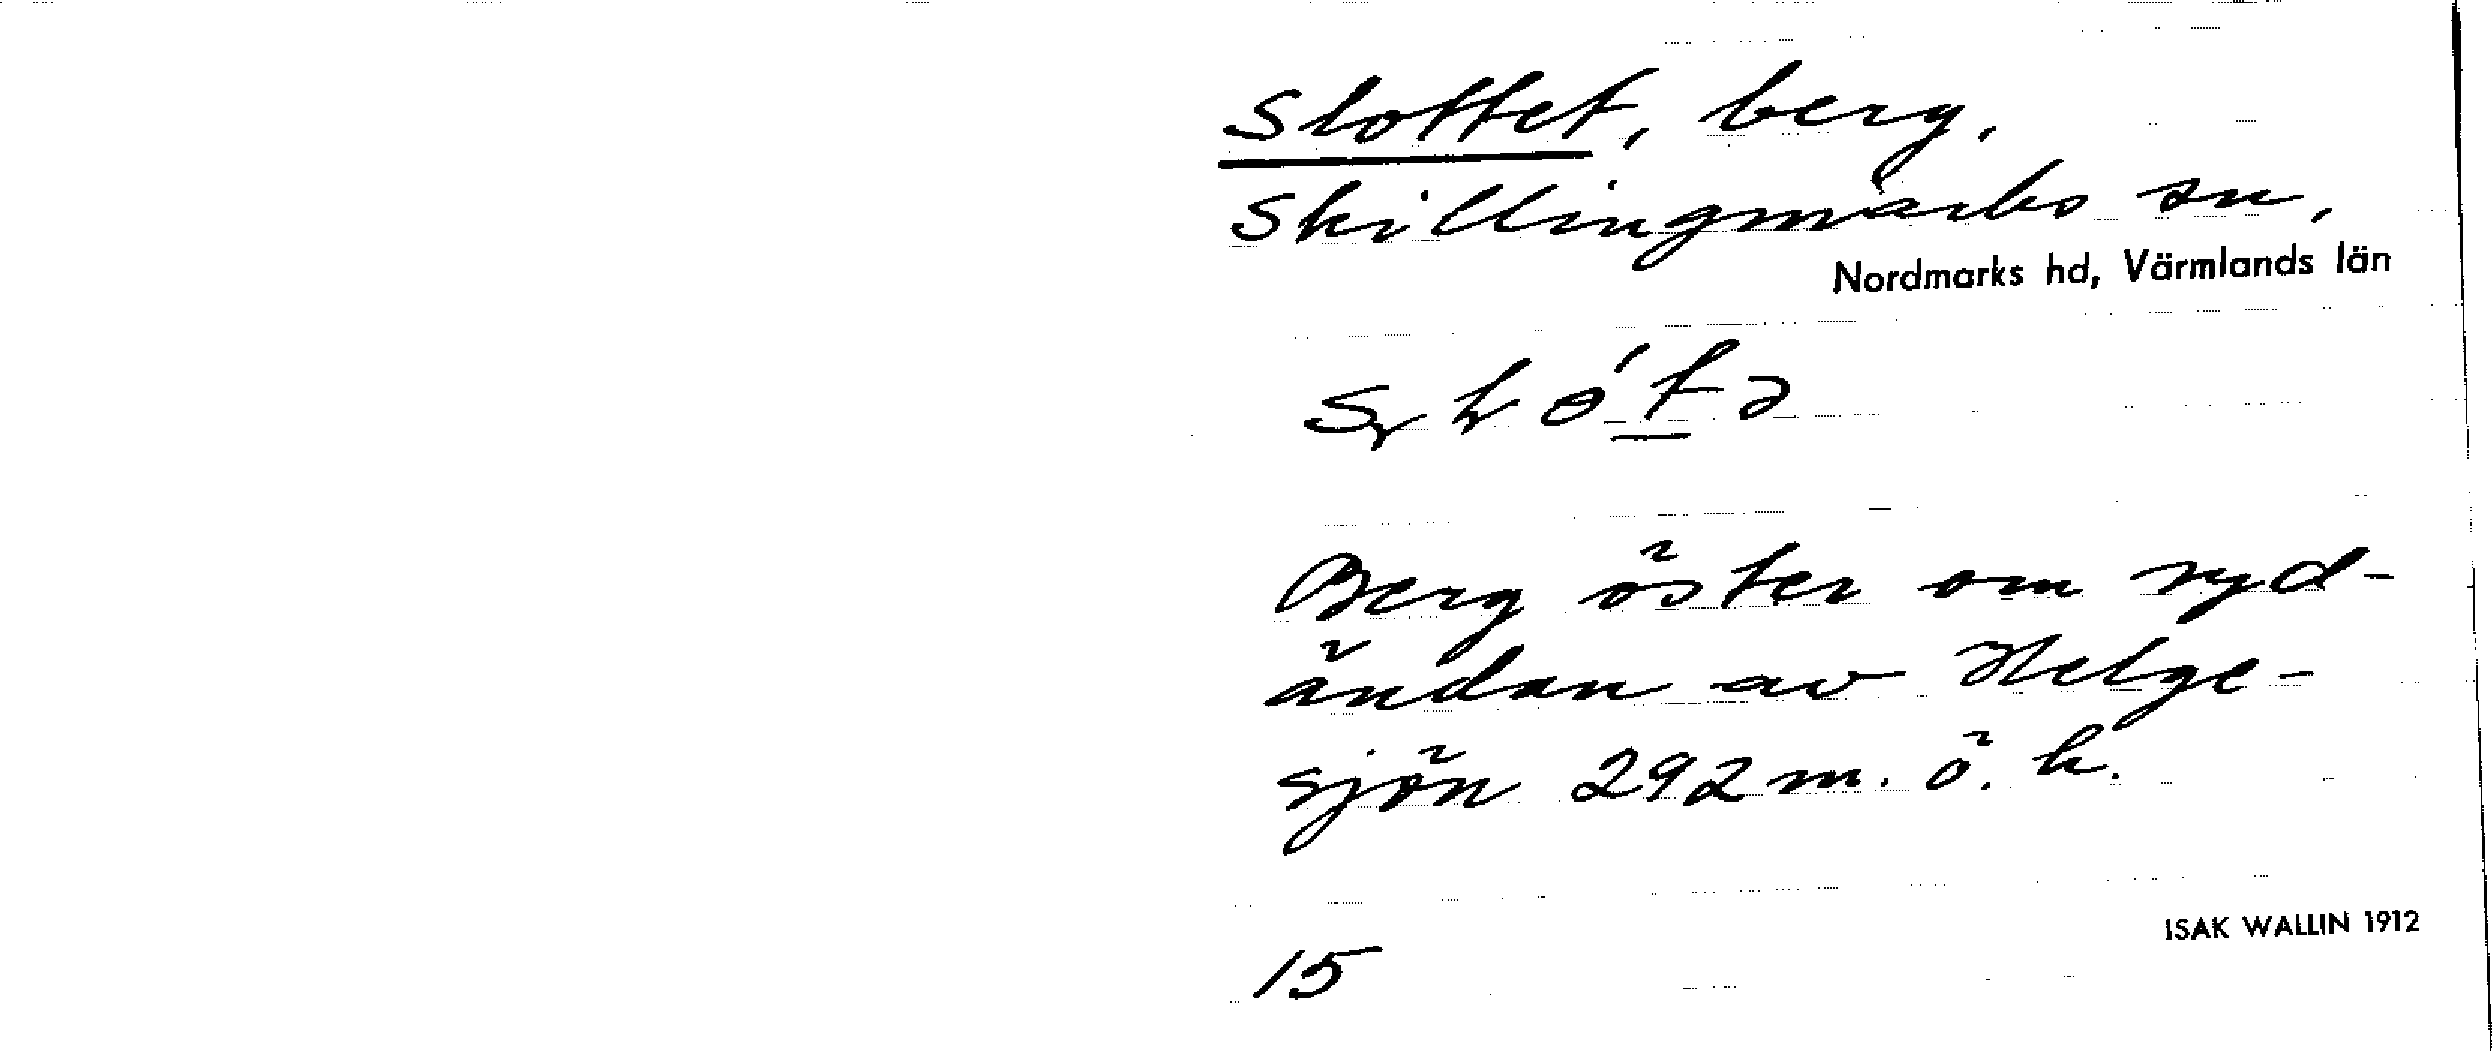 Slottet, berg.
Skillingmarks sn,
Nordmarks hd, Värmlands län
Berg öster om syd-
ändan av Helge-
sjön 292 m. ö. h.
ISAK WALLIN 1912
15